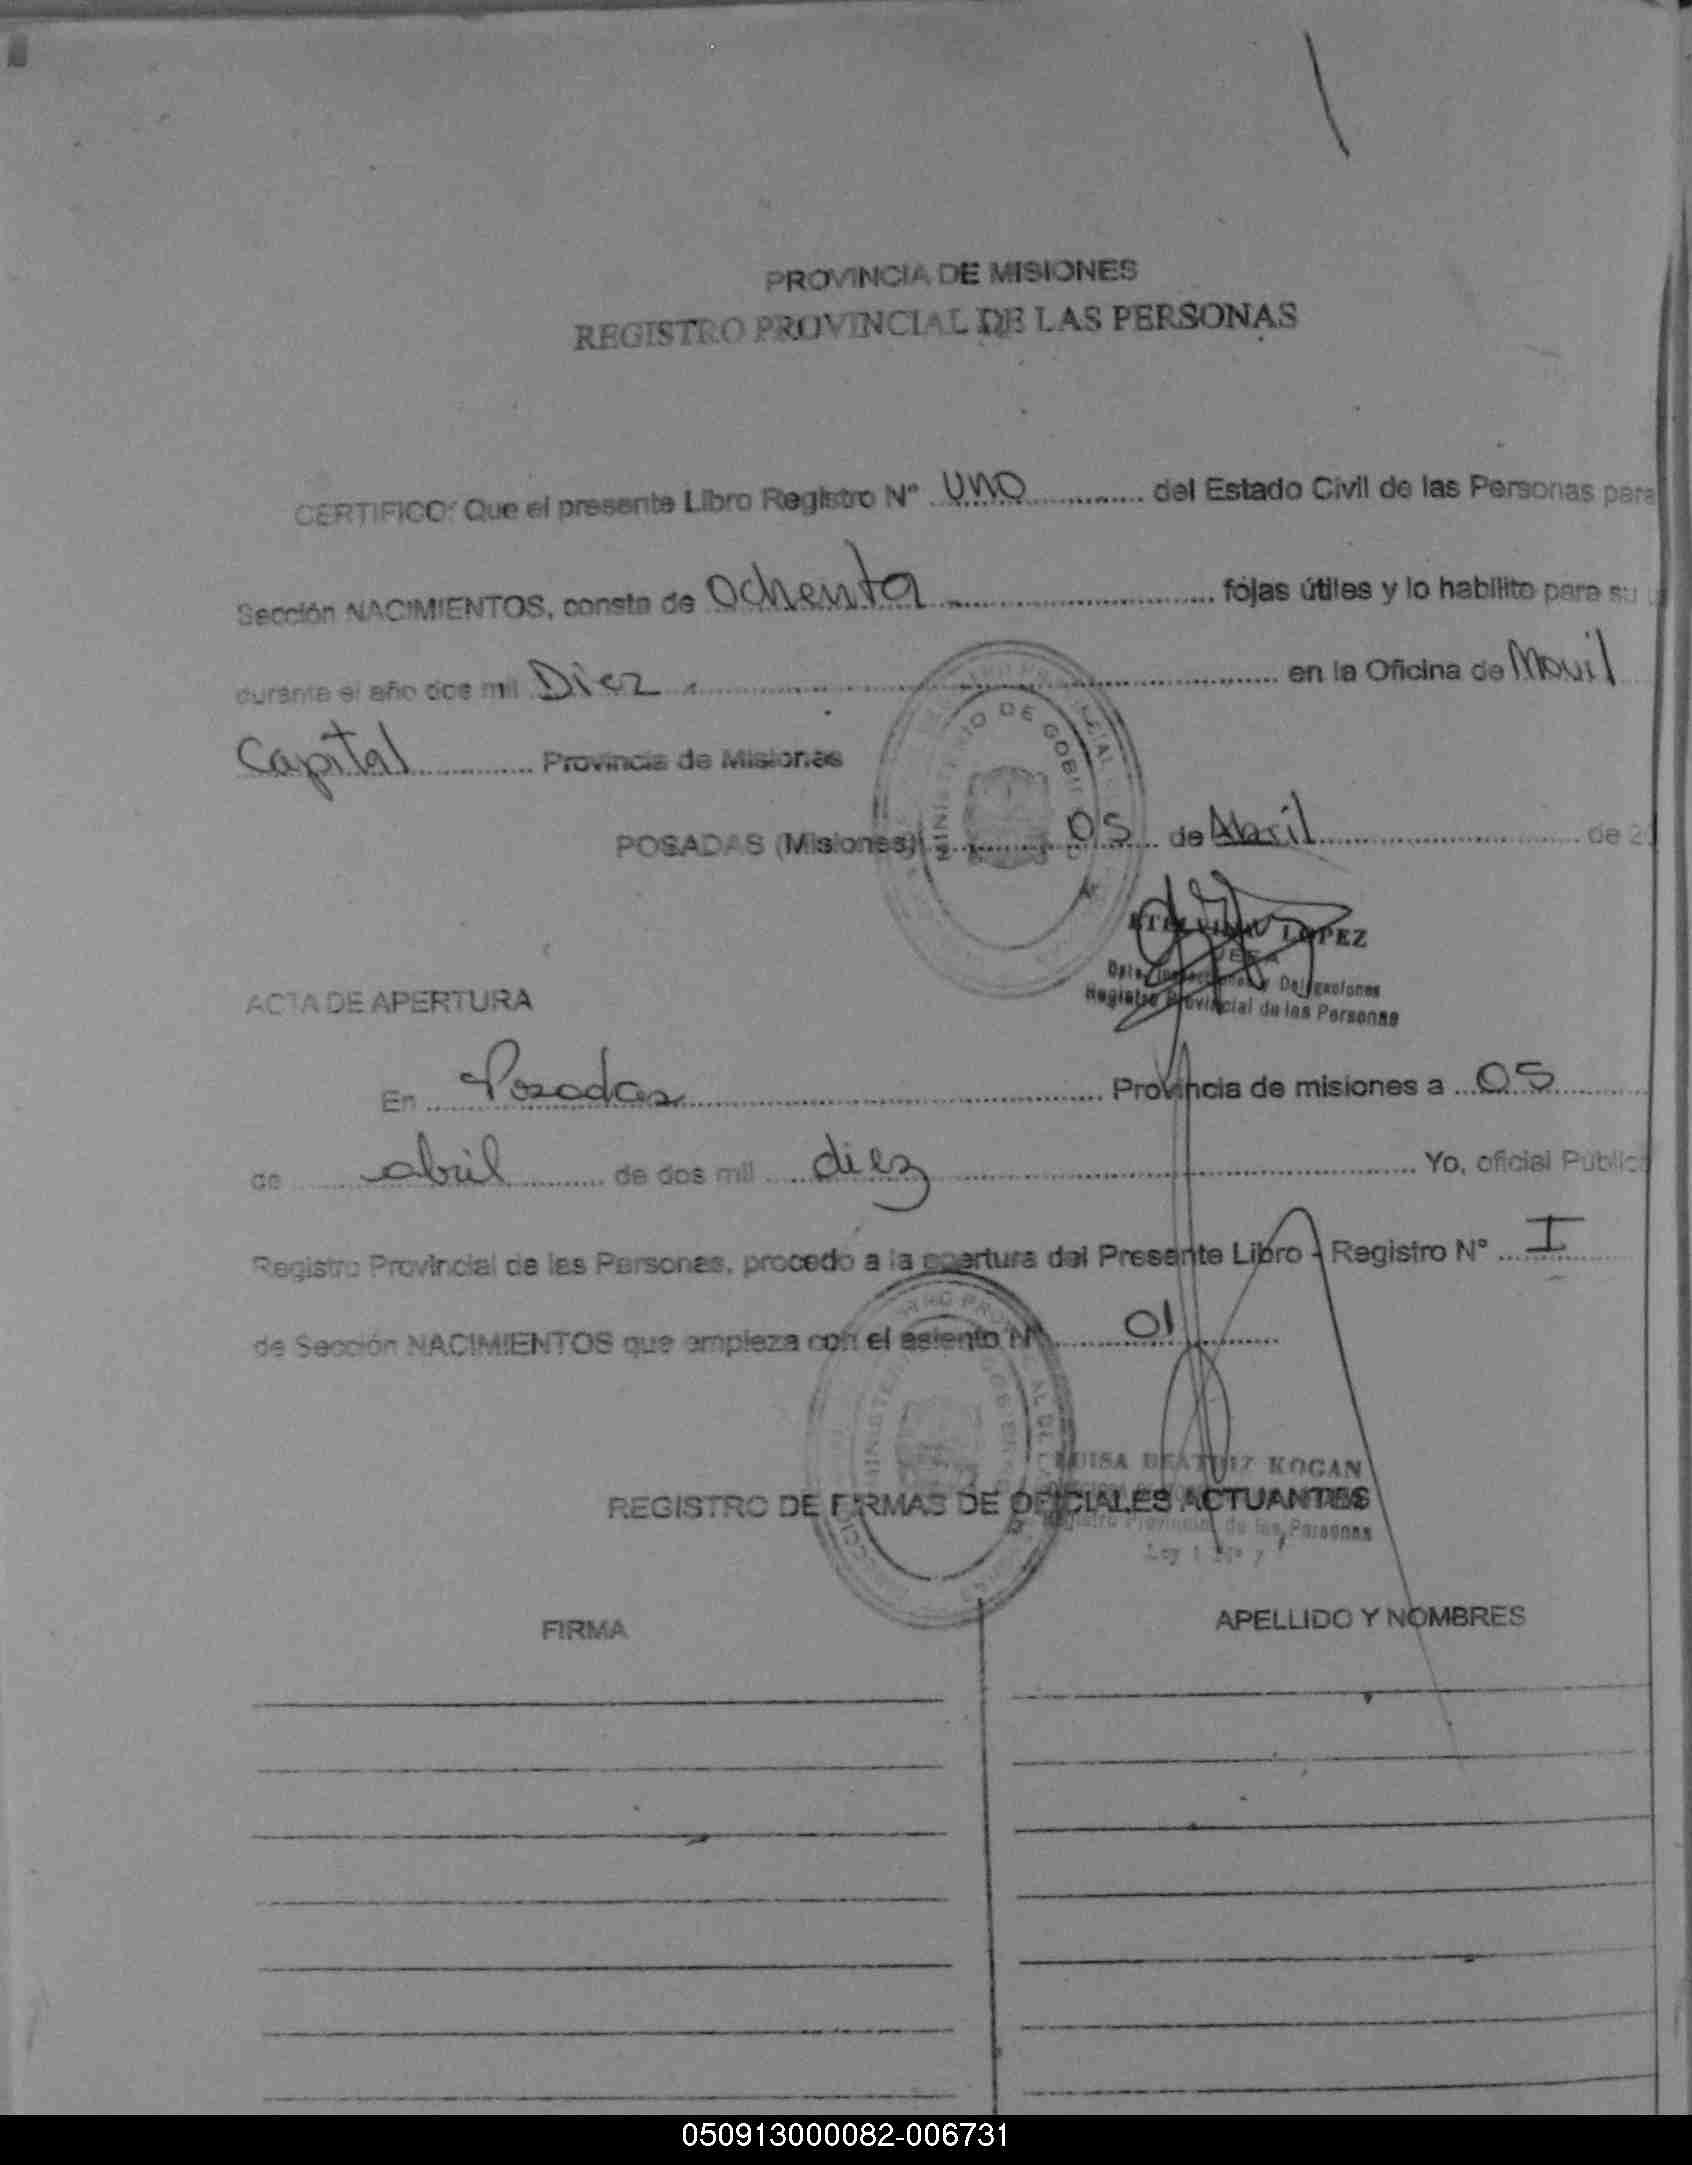 PROVINCIA DE MISIONES
REGISTRO PROVINCIAL DE LAS PERSONAS
CERTIFICO: Que el presente Libro Registro N° UNO del Estado Civil de las Personas para
Sección NACIMIENTOS, consta de Ochenta fojas útiles y lo habilito para su
durante el año dos mil Diez en la Oficina de Movil
Capital Provincia de Misiones
POSADAS (Misiones) 05 de Abril de 20
LOPEZ
JEFA
Dpto. Inspecciones y Delegaciones
Registro Provincial de las Personas
ACTA DE APERTURA
En Posadas Provincia de misiones a 05
de abril de dos mil diez Yo, oficial Público
Registro Provincial de las Personas, procedo a la apertura del Presente Libro - Registro N° I
de Sección NACIMIENTOS que empieza con el asiento N° 01
LUISA BEATRIZ KOGAN
REGISTRO DE FIRMAS DE OFICIALES ACTUANTES
Registro Provincial de las Personas
Ley
FIRMA APELLIDO Y NOMBRES
050913000082-006731